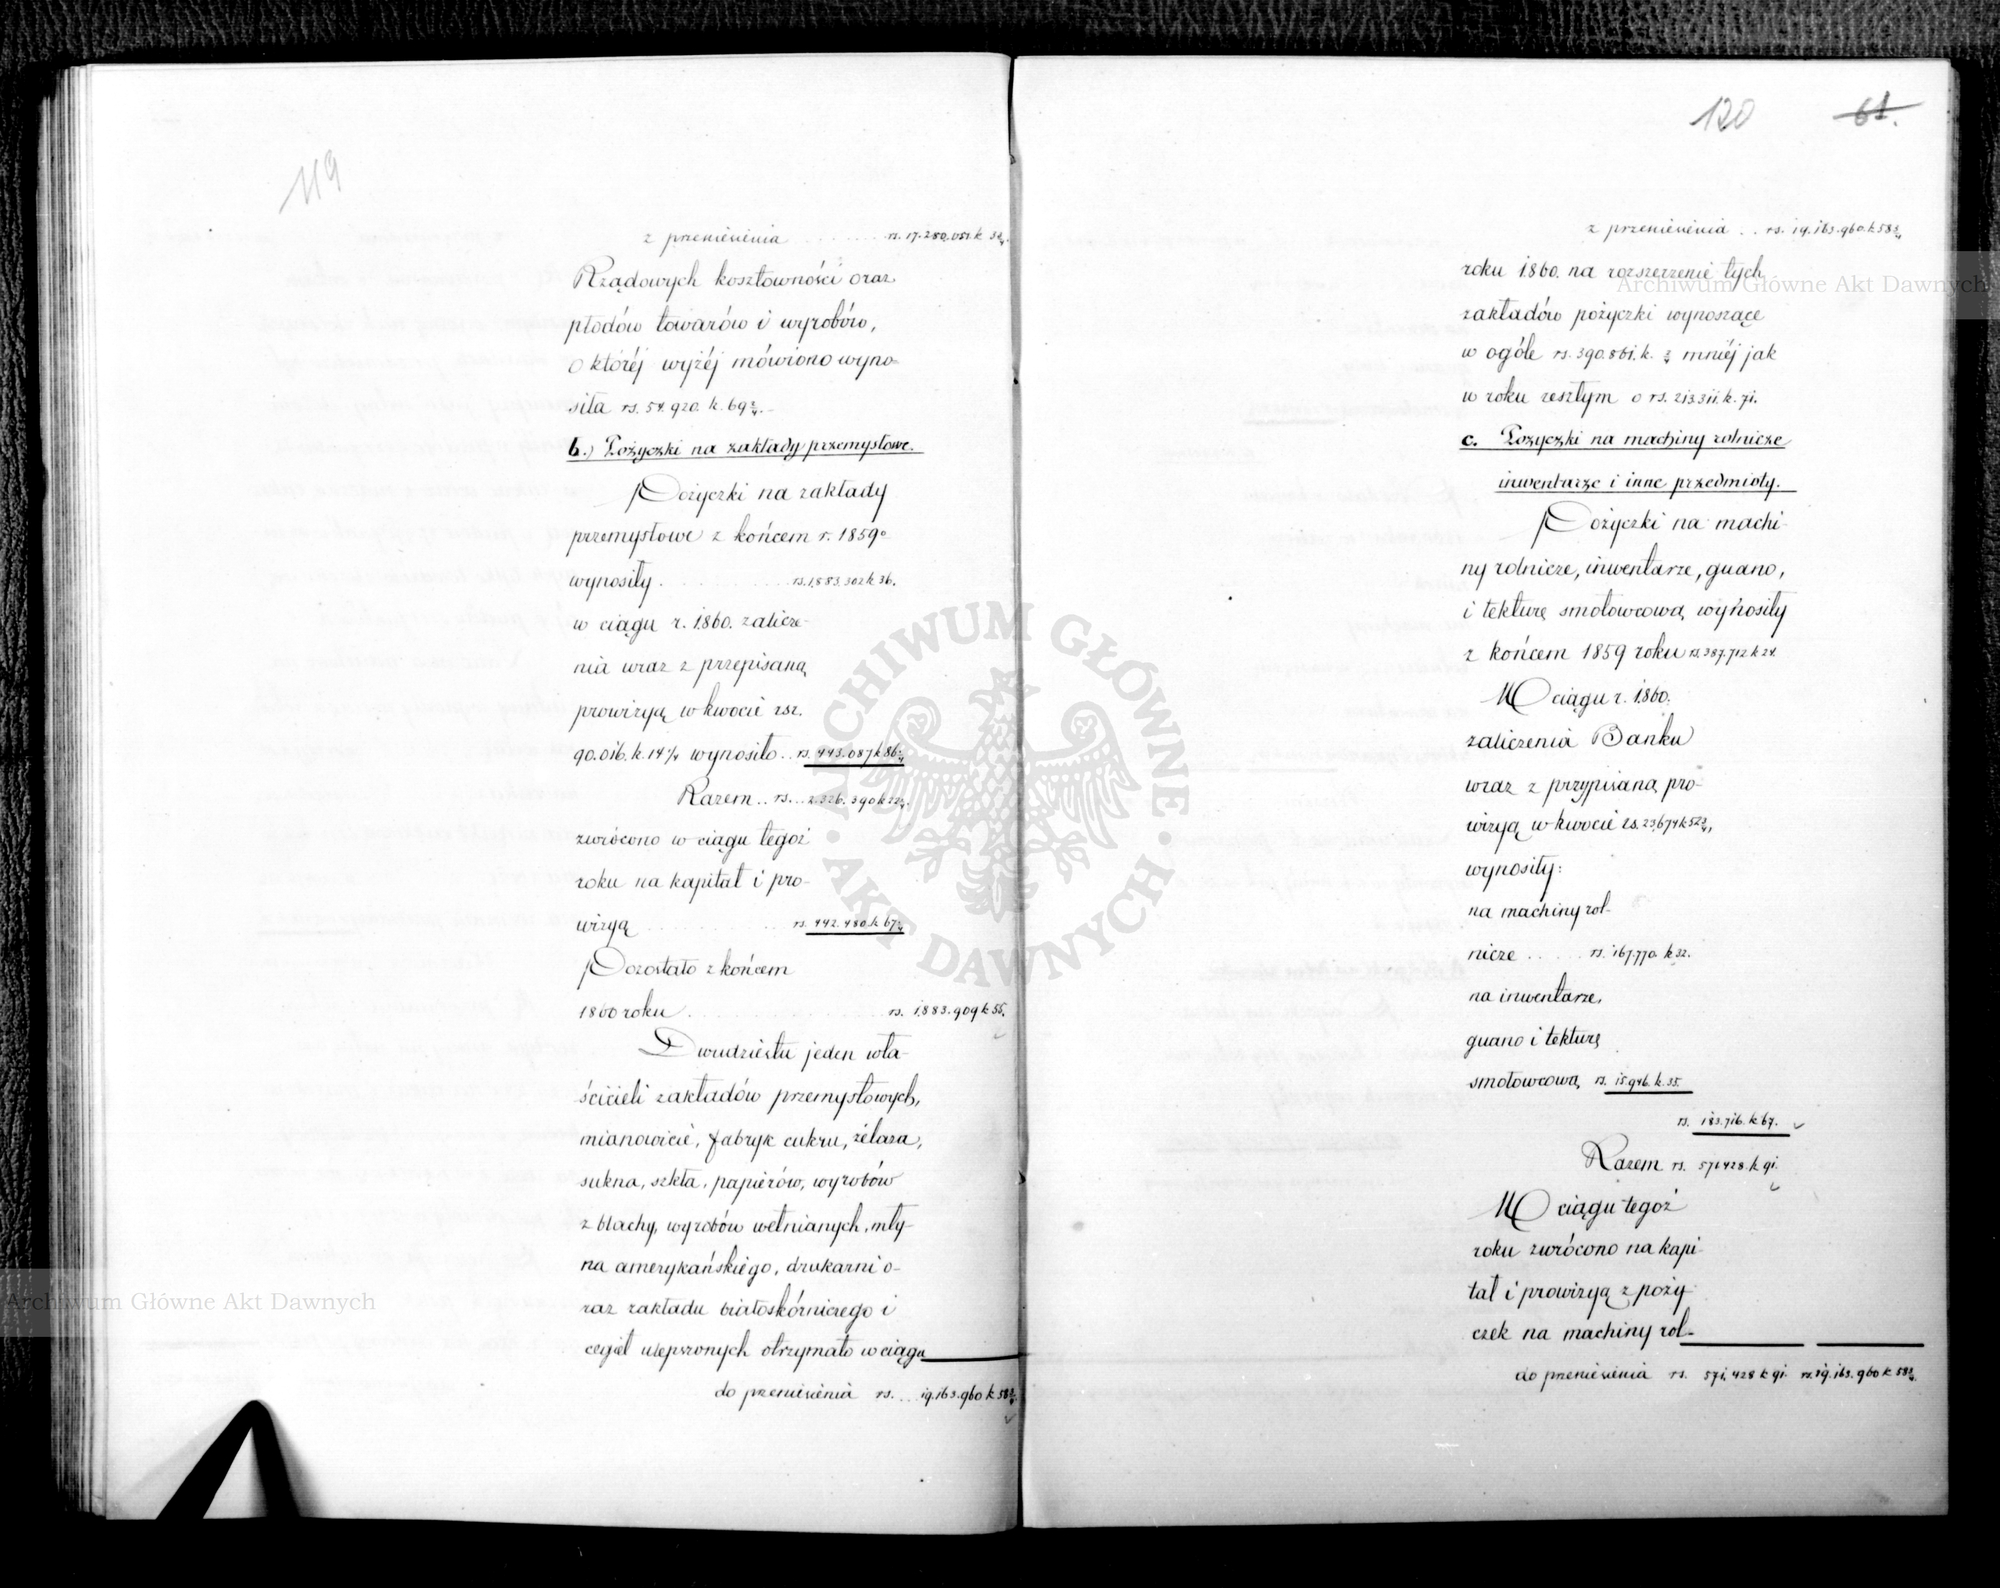 119
z przeniesienia . . . . . . . rs. 17.280.051. k 3¾.
Rządowych kosztowności oraz
płodów towarów i wyrobów,
o któréj wyżéj mówiono wyno-
siła rs. 54.920. k. 69¾.-
b.) Pożyczki na zakłady przemysłowe.
Pożyczki na zakłady
przemysłowe z końcem r. 1859º
wynosiły . . . . . . . . . rs. 1,883.302 k 36.
w ciągu r. 1860. zalicze-
nia wraz z przepisaną
prowizyą w kwocie rsr.
90.016. k. 14¼ wynosiło . . rs. 443.087 k 86¾
Razem . . rs. . . 2.326.390 k 22¾.
zwrócono w ciągu tegoż
roku na kapitał i pro-
wizyą . . . . . . . . . rs. 442.480. k 67¾
Pozostało z końcem
1860 roku . . . . . . . . . . . . . rs. 1,883.909 k 55.
Dwudziestu jeden wła-
ścicieli zakładów przemysłowych,
mianowicie, fabryk cukru, żelaza,
sukna, szkła, papierów, wyrobów
z blachy, wyrobów wełnianych, mły-
na amerykańskiego, drukarni o-
raz zakładu białoskórniczego i
cegieł ulepszonych otrzymało w ciągu
do przeniesienia rs. . . . 19.163.960 k 58¾
120 61.
z przeniesienia . . rs. 19.163.960. k 58¾
roku 1860. na rozszerzenie tych
zakładów pożyczki wynoszące
w ogóle rs. 390.861. k. ¾ mniéj jak
w roku zeszłym o rs. 213.311. k. 71.
c. Pożyczki na machiny rolnicze
inwentarze i inne przedmioty.
Pożyczki na machi-
ny rolnicze, inwentarze, guano,
i tekturę smołowcową wynosiły
z końcem 1859 roku rs. 387.712 k 24.
W ciągu r. 1860.
zaliczenia Banku
wraz z przypisaną pro-
wizyą w kwocie rs. 23,674 k 52¾,
wynosiły:
na machiny rol-
nicze . . . . . rs. 167.770. k 32.
na inwentarze,
guano i tekturę
smołowcową rs. 15.946. k. 35.
rs. 183.716. k 67.
Razem rs. 571.428. k 91.
W ciągu tegoż
roku zwrócono na kapi-
tał i prowizyą z poży-
czek na machiny rol-
do przeniesienia rs. 571.428 k 91. rs. 19.163.960 k 58¾.
Archiwum Główne Akt Dawnych
Archiwum Główne Akt Dawnych
ARCHIWUM GŁÓWNE · AKT DAWNYCH ·